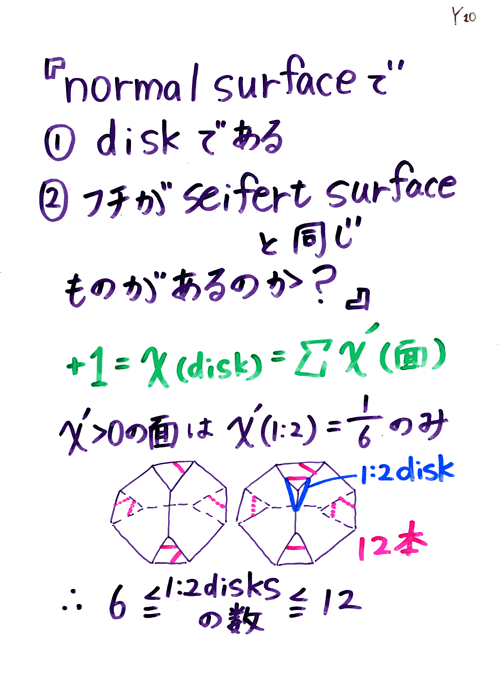 Y20
『normal surfaceで
① diskである
② フチが seifert surface
と同じ
ものがあるのか？』
+1 = χ(disk) = Σχ'(面)
χ'>0の面は χ'(1:2) = 1/6 のみ
1:2disk
12本
∴ 6 ≦ 1:2disksの数 ≦ 12